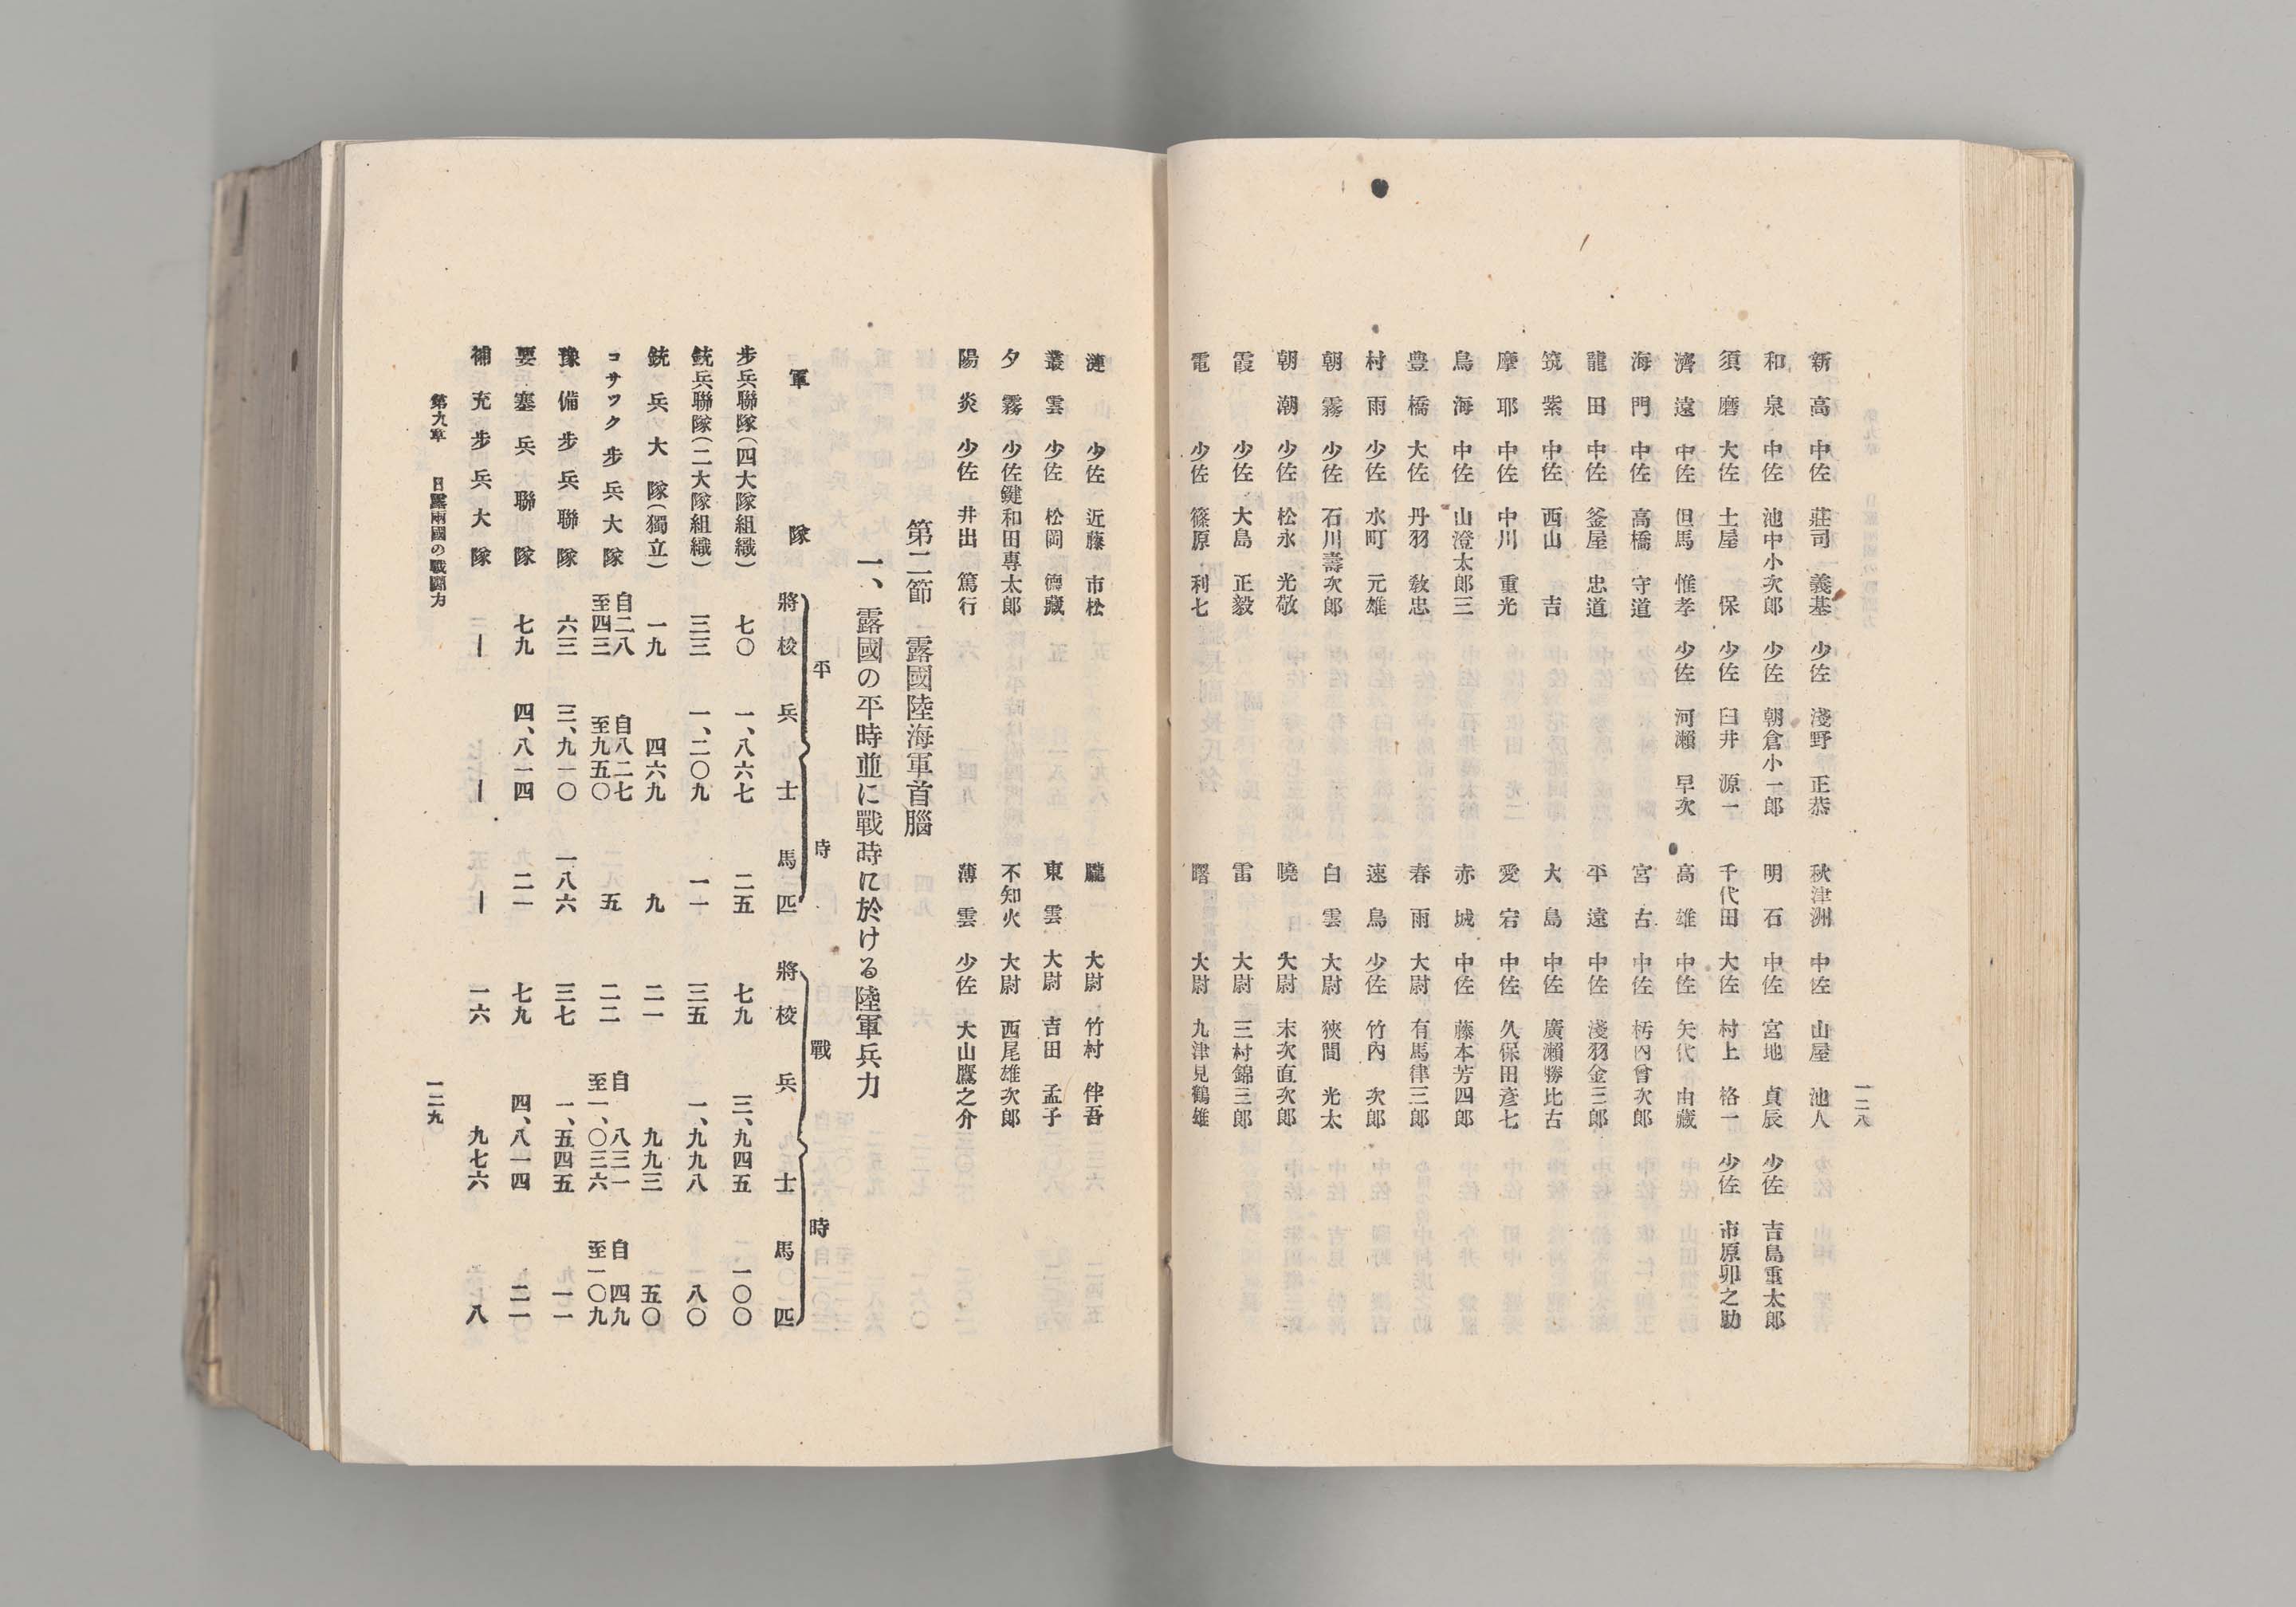 一二八
新高 中佐 莊司 義基 少佐 淺野 正恭 秋津洲 中佐 山屋 池人
和泉 中佐 池中小次郎 少佐 朝倉小一郎 明石 中佐 宮地 貞辰 少佐 吉島重太郎
須磨 大佐 土屋 保 少佐 臼井 源一 千代田 大佐 村上 格一 少佐 市原卯之助
濟遠 中佐 但馬 惟孝 少佐 河瀨 早次 高雄 中佐 矢代 由藏
海門 中佐 高橋 守道 宮古 中佐 栃內曾次郎
龍田 中佐 釜屋 忠道 平遠 中佐 淺羽金三郎
筑紫 中佐 西山 吉 大島 中佐 廣瀨勝比古
摩耶 中佐 中川 重光 愛宕 中佐 久保田彥七
鳥海 中佐 山澄太郎三 赤城 中佐 藤本芳四郎
豊橋 大佐 丹羽 敎忠 春雨 大尉 有馬律三郎
村雨 少佐 水町 元雄 速鳥 少佐 竹內 次郎
朝霧 少佐 石川壽次郎 白雲 大尉 狹間 光太
朝潮 少佐 松永 光敬 曉 大尉 末次直次郎
霞 少佐 大島 正毅 雷 大尉 三村錦三郎
電 少佐 篠原 利七 曙 大尉 九津見鶴雄
漣 少佐 近藤 市松 朧 大尉 竹村 伴吾
叢雲 少佐 松岡 德藏 東雲 大尉 吉田 孟子
夕霧 少佐 鍵和田專太郎 不知火 大尉 西尾雄次郎
陽炎 少佐 井出 篤行 薄雲 少佐 大山鷹之介
第二節 露國陸海軍首腦
一、露國の平時並に戰時に於ける陸軍兵力
平時 戰時
軍隊 將校 兵士 馬匹 將校 兵士 馬匹
步兵聯隊(四大隊組織) 七〇 一、八六七 二五 七九 三、九四五 一〇〇
銃兵聯隊(二大隊組織) 三三 一、二〇九 一一 三五 一、九九八 八〇
銃兵大隊(獨立) 一九 四六九 九 二一 九九三 五〇
コサツク步兵大隊 自二八至四三 自八二七至九五〇 五 二二 自八三一至一、〇三六 自四九至一〇九
豫備步兵聯隊 六三 三、九一〇 一八六 三七 一、五四五 一一
要塞兵聯隊 七九 四、八一四 二一 七九 四、八一四 二一
補充步兵大隊 ー ー ー 一六 九七六 八
第九章 日露兩國の戰鬪力
一二九